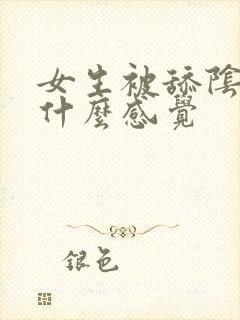 女生被舔陰
什麼感覺
銀色